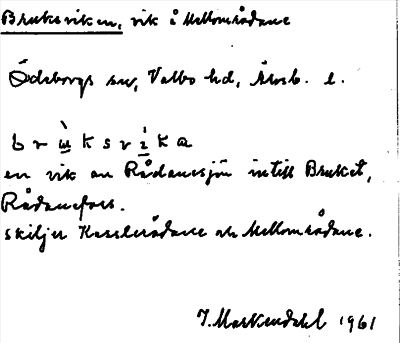 Bruksviken, vik å Mellområdane
Ödeborgs sn, Valbo hd, Älvsb. l.
b r ù k s v i k a
en vik av Rådanesjön intill Bruket,
Rådanefors.
skiljer Kasslerådane och Mellområdane.
J. Markendahl 1961